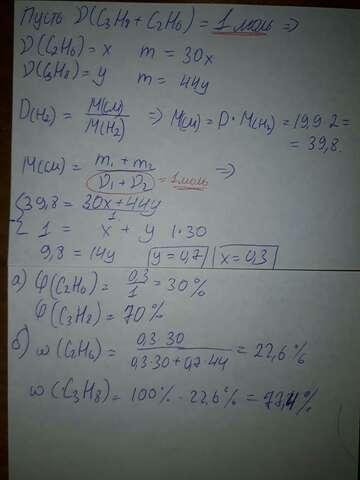 Пусть ν(C₃H₈ + C₂H₆) = 1 моль ⇒
ν(C₂H₆) = x m = 30x
ν(C₃H₈) = y m = 44y
D(H₂) = M(см) / M(H₂) ⇒ M(см) = D · M(H₂) = 19,9 · 2 =
= 39,8.
M(см) = m₁ + m₂ / ν₁ + ν₂ = 1 моль ⇒
{39,8 = 30x + 44y / 1
1 = x + y | · 30
9,8 = 14y y = 0,7 x = 0,3
а) φ(C₂H₆) = 0,3 / 1 = 30%
φ(C₃H₈) = 70%
б) ω(C₂H₆) = 0,3 · 30 / 0,3 · 30 + 0,7 · 44 = 22,6%
ω(C₃H₈) = 100% - 22,6% = 77,4%